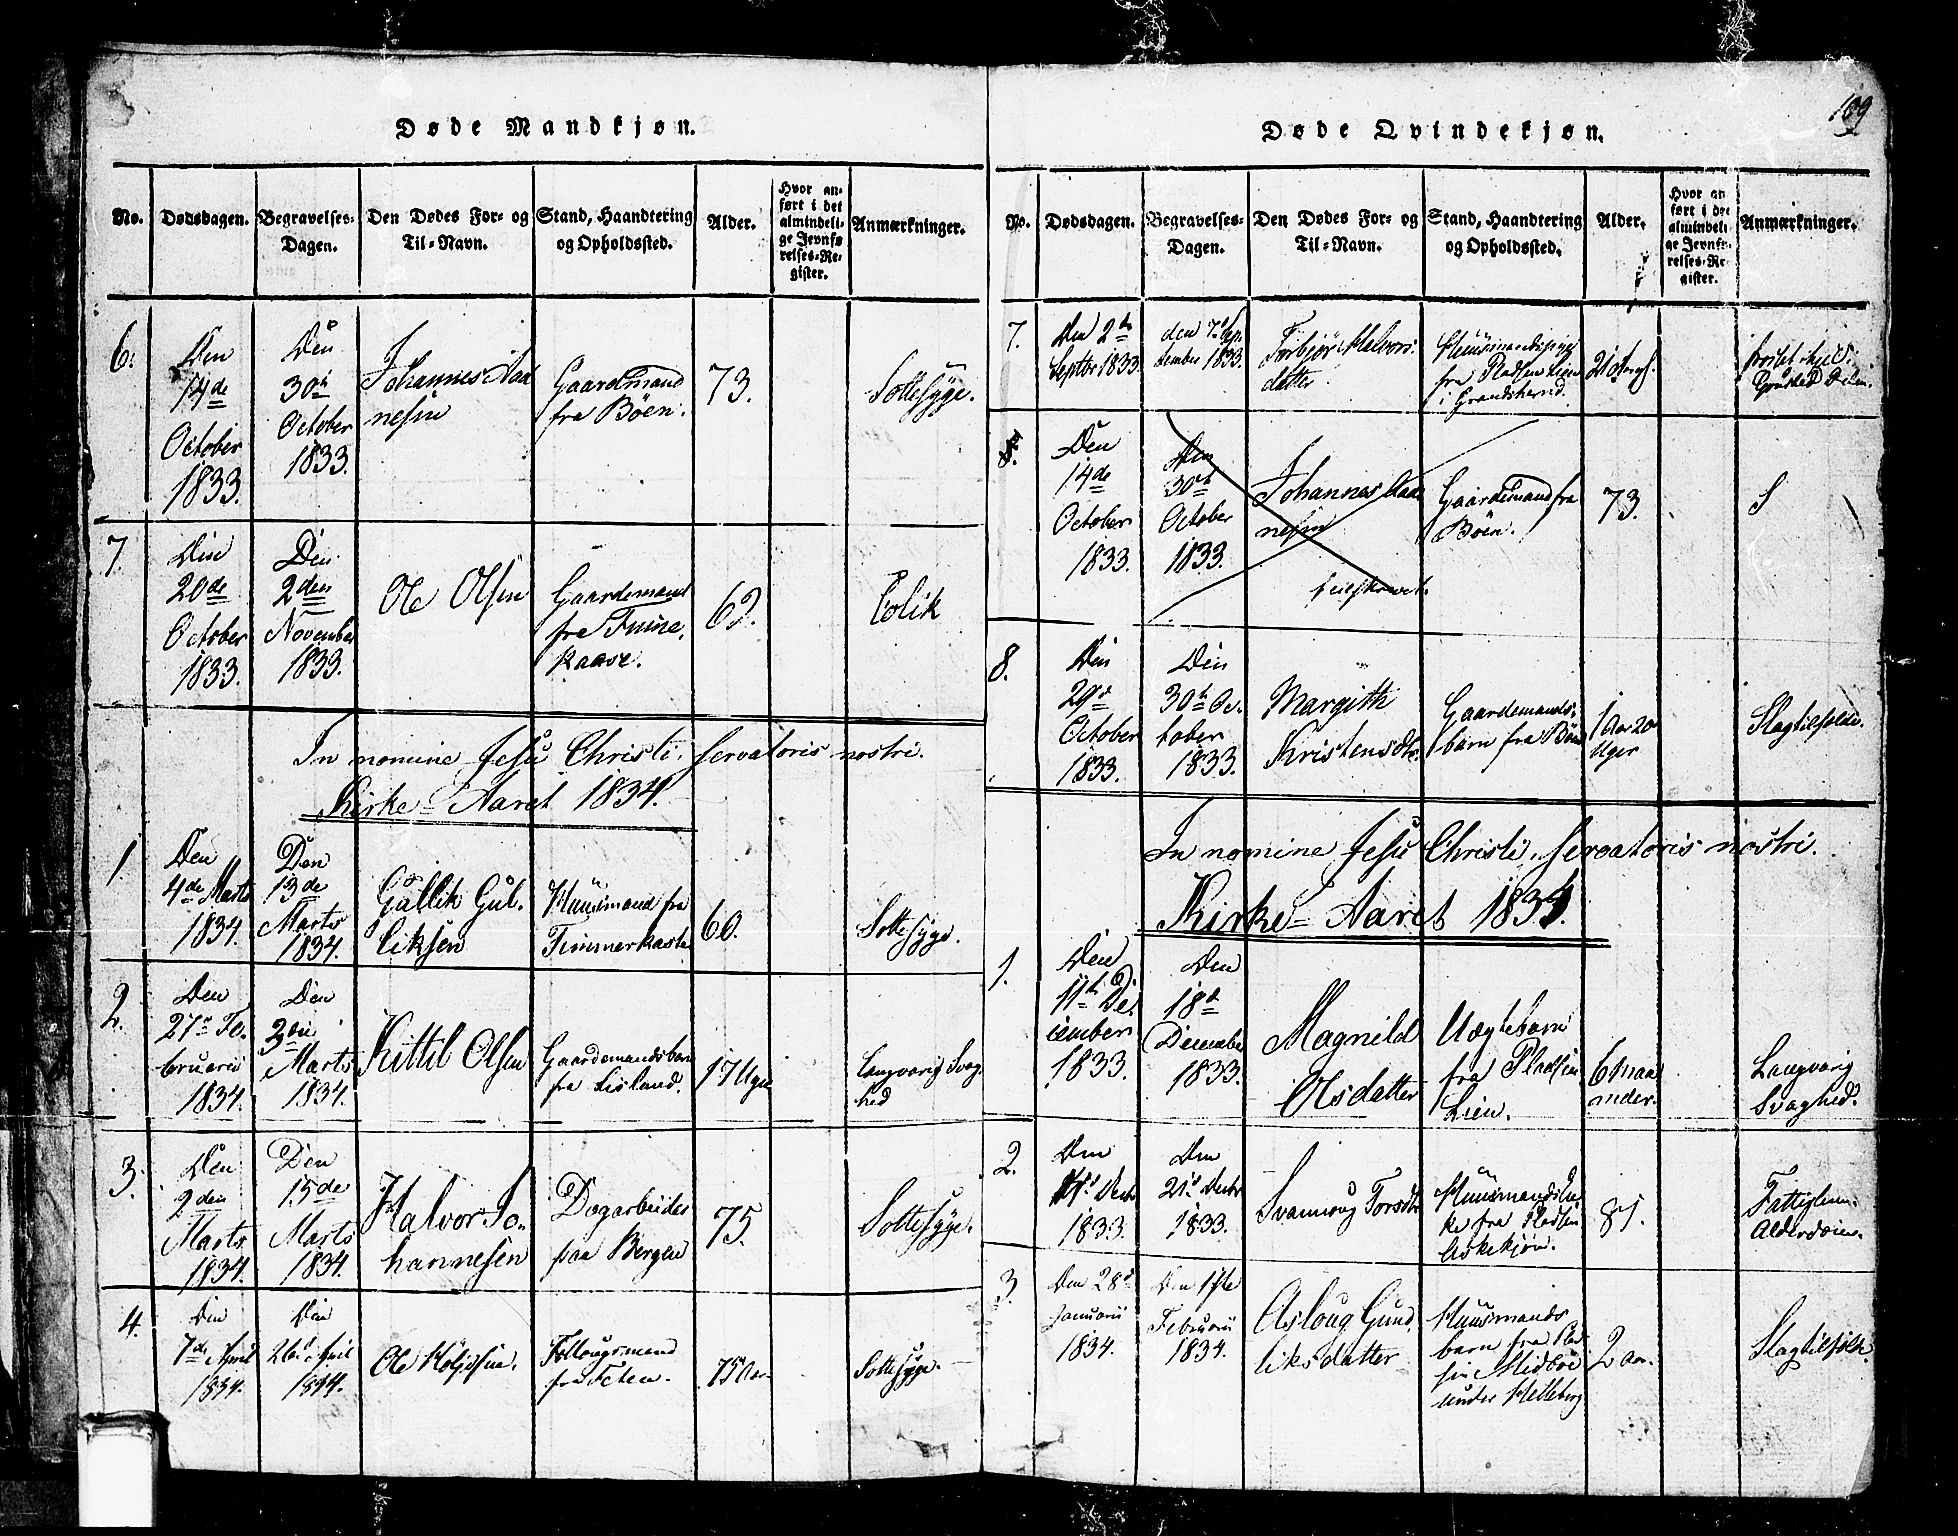 109
Døde Mandkjøn.
No.
Dødsdagen.
Begravelses-
Dagen.
Den Dødes For- og
Til-Navn.
Stand, Haandtering
og Opholdssted.
Alder.
Hvor an-
ført i det
almindeli-
ge Jevnfø
relses-Re-
gister.
Anmærkninger.
6.
Den
14de
October
1833.
Den
30te
October
1833.
Johannes Aad
nesen
Gaardemand
fra Böen.
73.
Sottesyge.
7.
Den
20de
October
1833.
Den
2den
November
1833.
Ole Olsen
Gaardemand
fra
kaase.
62.
Colik
In nomine Jesu Christi, servatoris nostri.
Kirke-Aaret 1834.
1
Den
4de Marts
1834.
Den
13de
Marts
1834.
Gullik Gul-
liksen
Huusmand fra
Timmerkaste
60.
Sottesyge.
2.
Den
27de Fe-
bruarii
1834.
Den
3die
Marts
1834.
Kittil Olsen
Gaardemandsbarn
fra Lisland.
17 Uger
Langvarig Svag
hed
3.
Den
2den
Marts
1834.
Den
15de
Marts
1834.
Halvor Jo-
hannesen
Dagarbeider
paa Bergen
75.
Sottesyge.
4.
Den
7de April
1834.
Den
26de April
1834.
Ole
Follougsmand
fra Teten.
75 Aar
Sottesyge.
Døde Qvindekjøn.
No.
Dødsdagen.
Begravelses-
Dagen.
Den Dødes For- og
Til-Navn.
Stand, Haandtering
og Opholdssted.
Alder.
Hvor an
ført i det
almindeli
ge Jevnfø-
relses-Re-
gister.
Anmærkninger.
7.
Den 2de
Septbr 1833.
den 7de Sep-
tember 1833.
Torbjør Halvors-
datter.
Huusmandspige
fra Pladsen Lien
i Grandsherred.
8.
Den
14de
October
1833.
Den
30te
October
1833.
Johannes Aad
nesen
Gaardemand fra
Böen.
73.
S
8.
Den
29de
October
1833.
Den
30te Oc-
tober
1833.
Margith
Kristensdtr.
Gaardemands-
barn fra Böen
1 Aar 20
Uger
In nomine Jesu Christi, servatoris nostri.
Kirke-Aaret 1834.
1.
Den
11te De-
cember
1833.
Den
18de
December
1833.
Magnild
Olsdatter
Uægtebarn
fra Pladsen
Lien.
6 maa
neder.
Langvarig
Svaghed.
2.
Den
Decbr
1833.
Den
21de Decbr
1833.
Svannoug Torsdtr
Huusmandsen
ke fra Pladsen
Fattiglem.
Alderdom.
3.
Den 28de
Januarii
1834.
Den 1ste
Februarii
1834.
Asloug Gund
liksdatter
Huusmands
barn fra Plad
sen Midböe
under Helleberg
2 Aar.